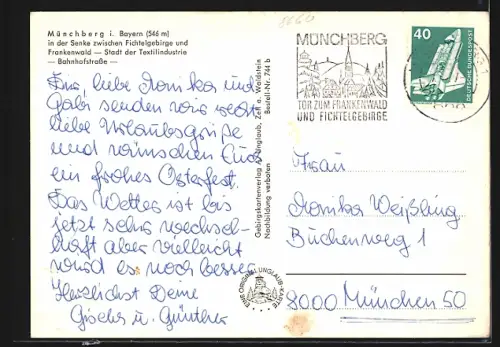 Münchberg i. Bayern (546 m)
in der Senke zwischen Fichtelgebirge und
Frankenwald — Stadt der Textilindustrie
— Bahnhofstraße —
liebe Monika und
Gabi senden wir recht
liebe Urlaubsgrüße
und wünschen Euch
ein frohes Osterfest.
Das Wetter ist bis
jetzt sehr wechsel-
haft aber vielleicht
wird es noch besser
Herzlichst Deine
Gisela u. Günther
Gebirgskartenverlag A. Unglaub, Zell a. Waldstein
Nachbildung verboten
Bestell-Nr. 744 b
EINE ORIGINAL UNGLAUB-KARTE
8660
MÜNCHBERG
TOR ZUM FRANKENWALD
UND FICHTELGEBIRGE
40
DEUTSCHE BUNDESPOST
Frau
Monika Weißling
Buchenweg 1
8000 München 50